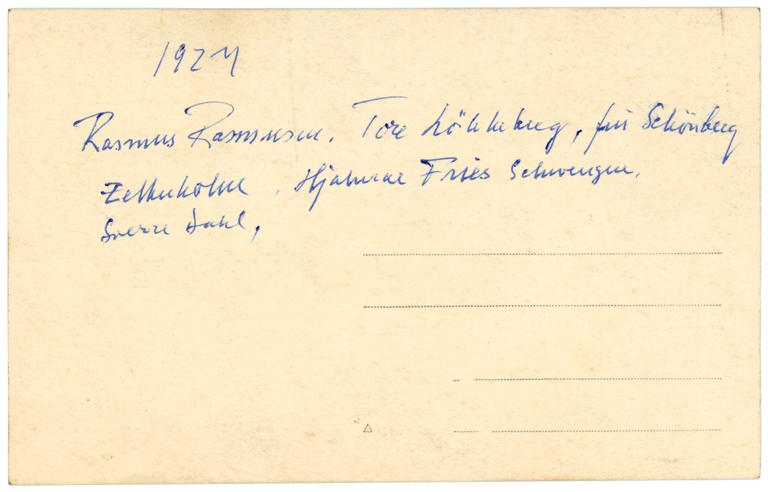 1927
Rasmus Rasmussen. Tore Løkkeberg, fru Schönberg
Zetterholm, Hjalmar Fries Schwenzen.
Sverre Dahl,